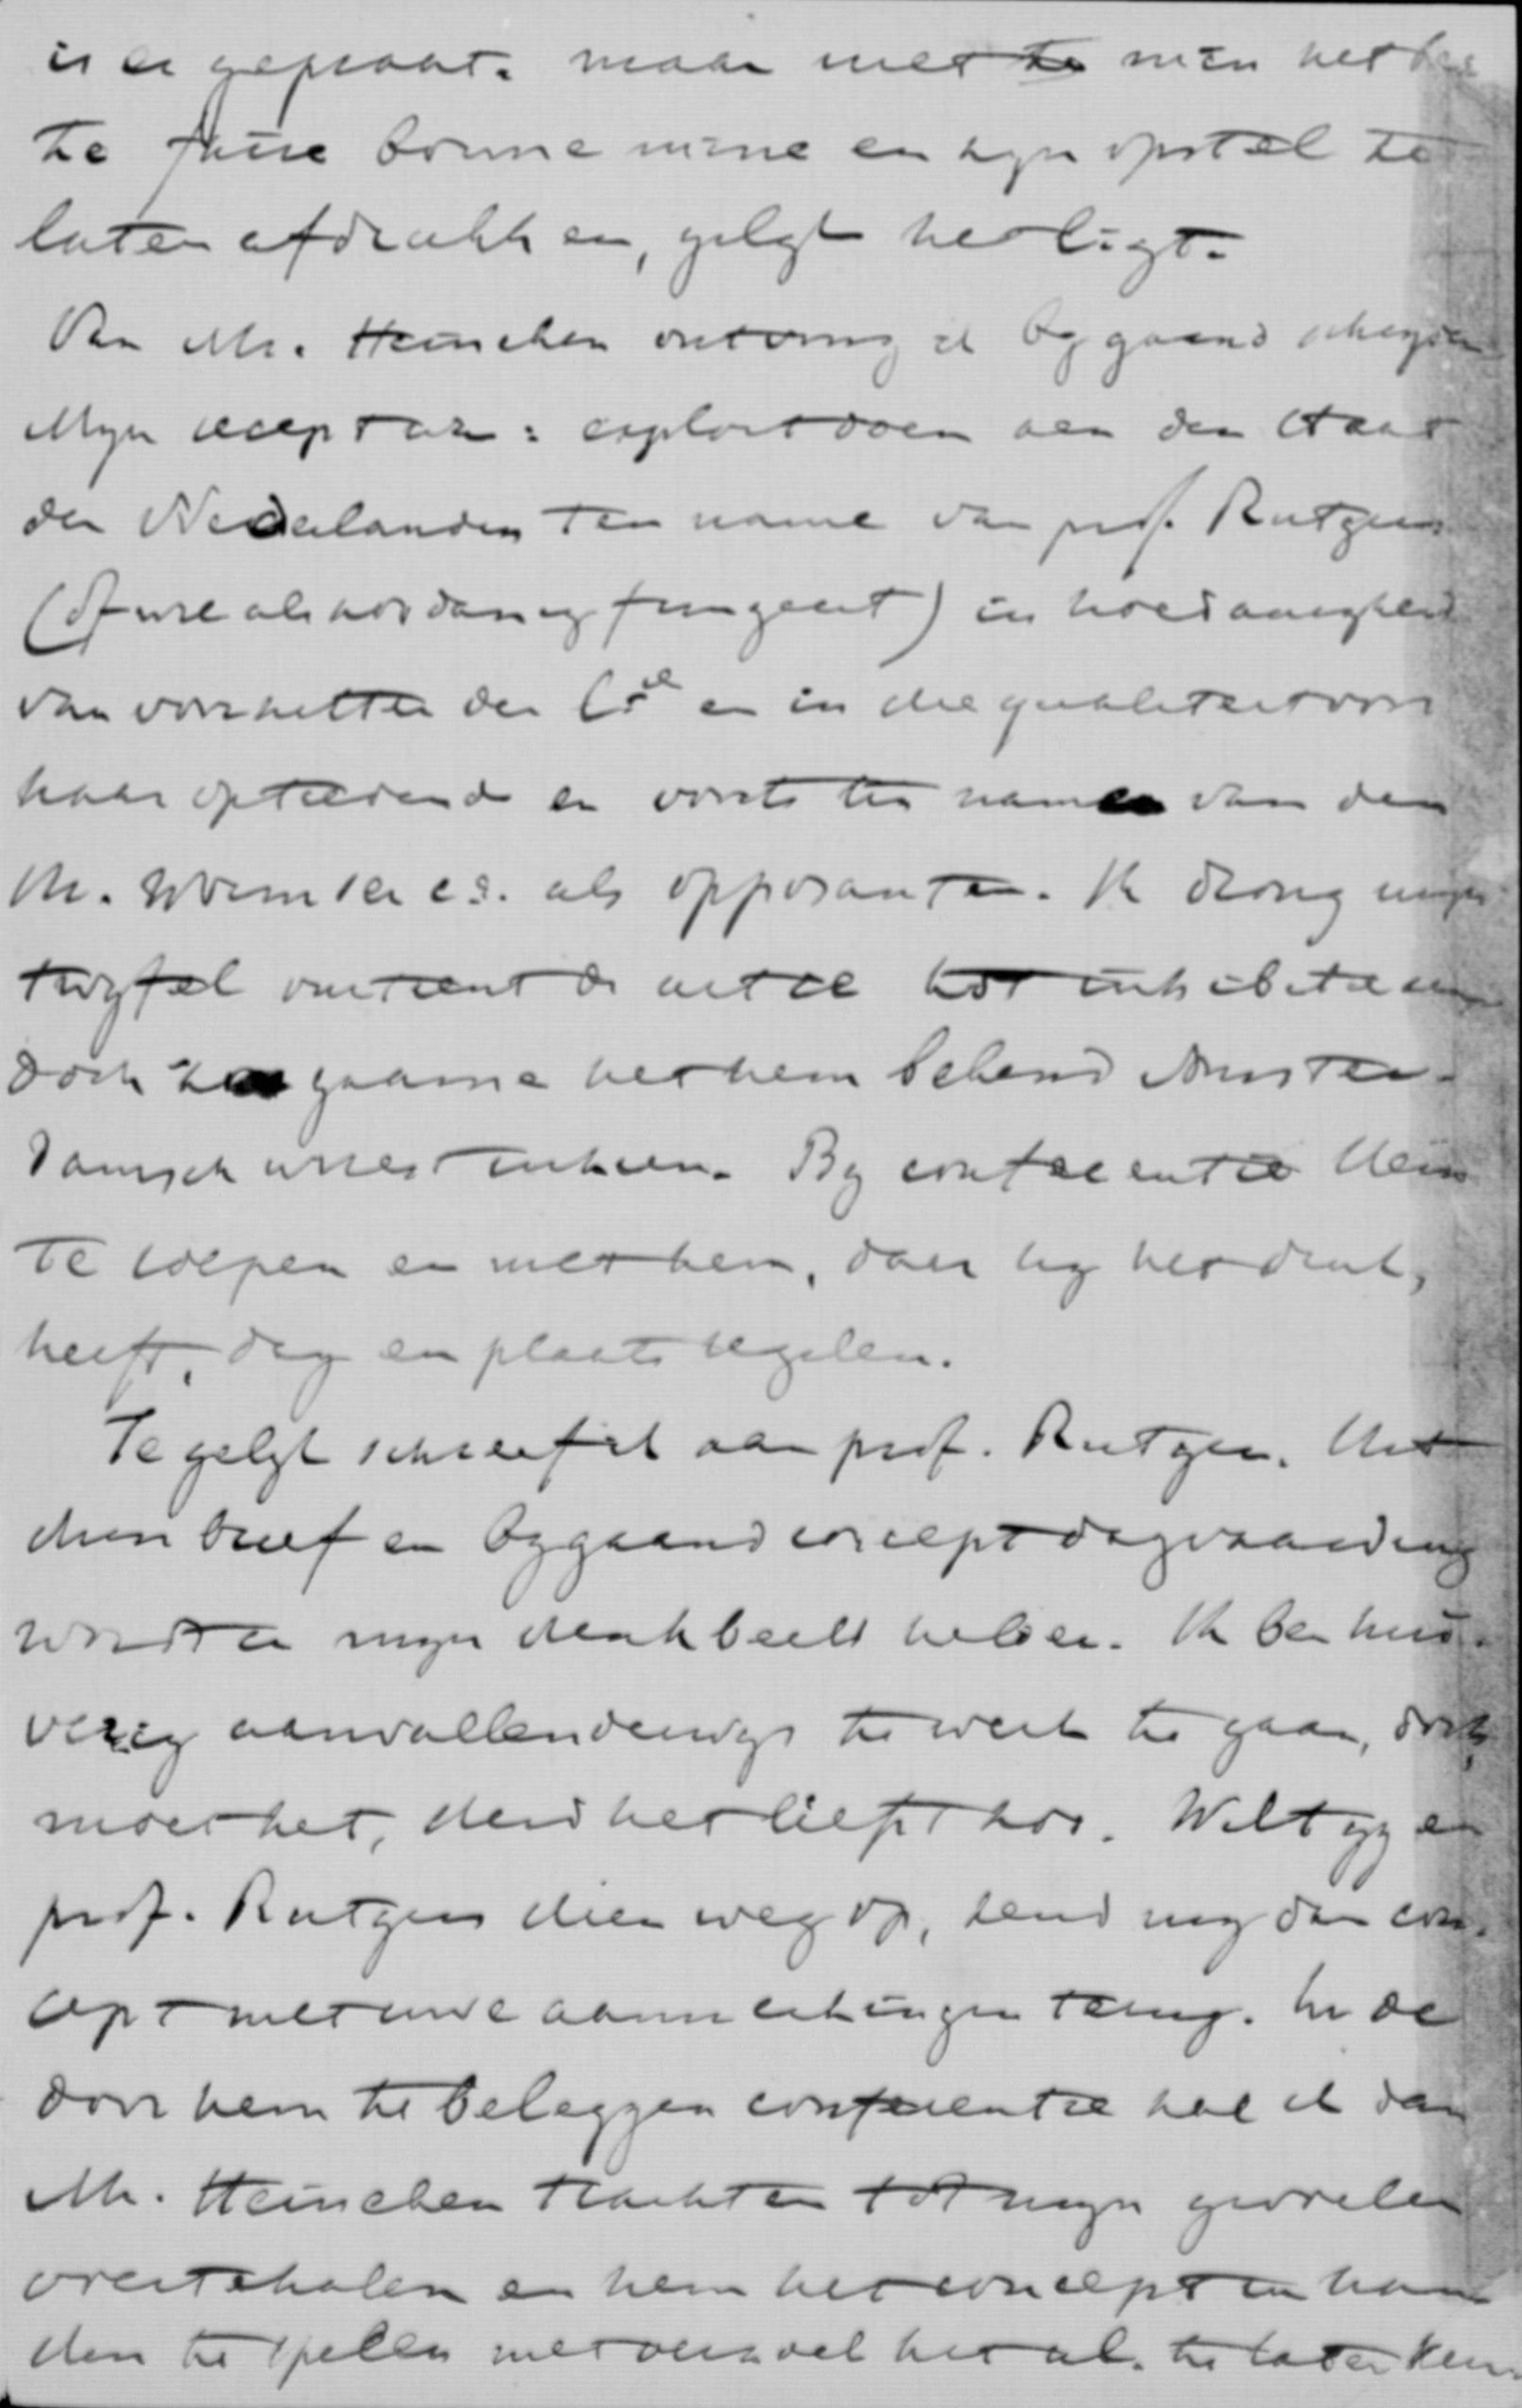 is er gepraat. maar met te min het
te faire bonne mine en zyn opstel te
laten afdrukken, gelyk het ligt.
Van Mr. Heineken ontving ik bygaand schryven
Myn recept was: exploit doen aan den Staat
der Nederlanden ten name van prof. Rutgers
(of wie als zoodanig fungeert) in hoedanigheid
van voorzitter der C.ie en in die qualiteit voor
haar optredend en voorts ten name van den
Mr. Wormser c.s. als opposanten. Ik drong myn
twyfel omtrent de actie
doch zag gaarne het hem bekend Amster-
damsch arrest inzien. By conferentie
te roepen en met hem, daar hy het druk,
heeft, dag en plaats regelen.
Te gelyk schreef ik aan prof. Rutgers. Uit
dien brief en bygaand concept dagvaarding
wordt u myn denkbeeld helder. Ik ben hui-
verig aanvallenderwys te werk te gaan, doch,
moet het, dan het liefst zoo. Wilt gy en
prof. Rutgers dien weg op, zend my dan con-
cept met uwe aanmerkingen terug. In de
door hem te beleggen conferentie zal ik dan
Mr. Heineken trachten tot myn gevoelen
overtehalen en hem het concept in han
den te spelen met verzoek het al. te laten